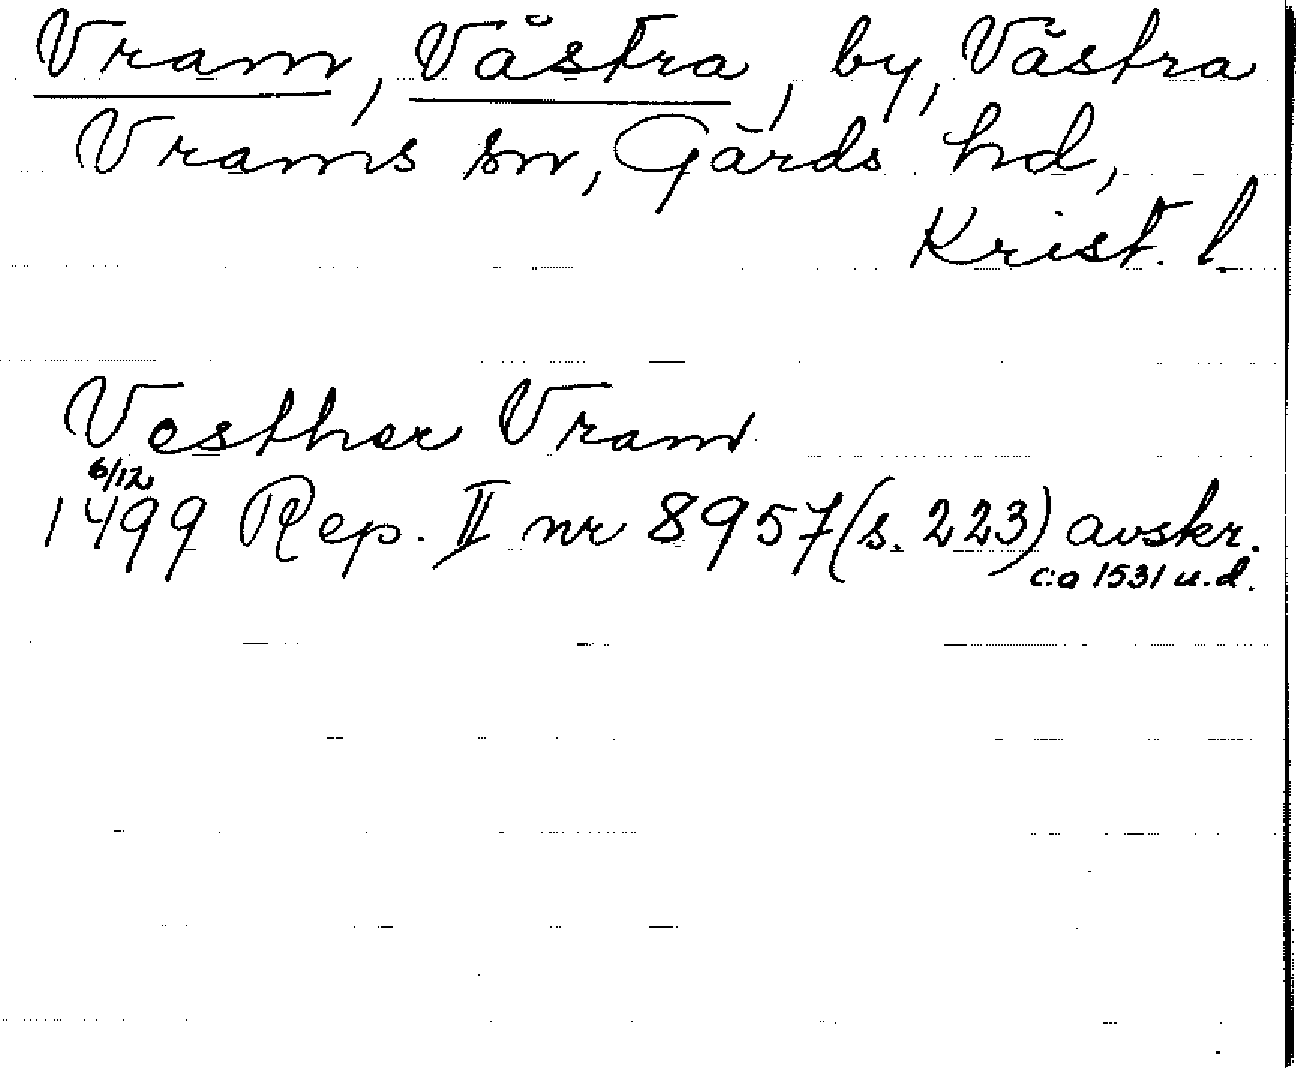 Vram, Västra, by, Västra
Vrams sn, Gärds hd,
Krist. l.
Vesther Vram
6/12
1499 Rep. II nr 8957 (s. 223) avskr.
ca 1531 u.d.